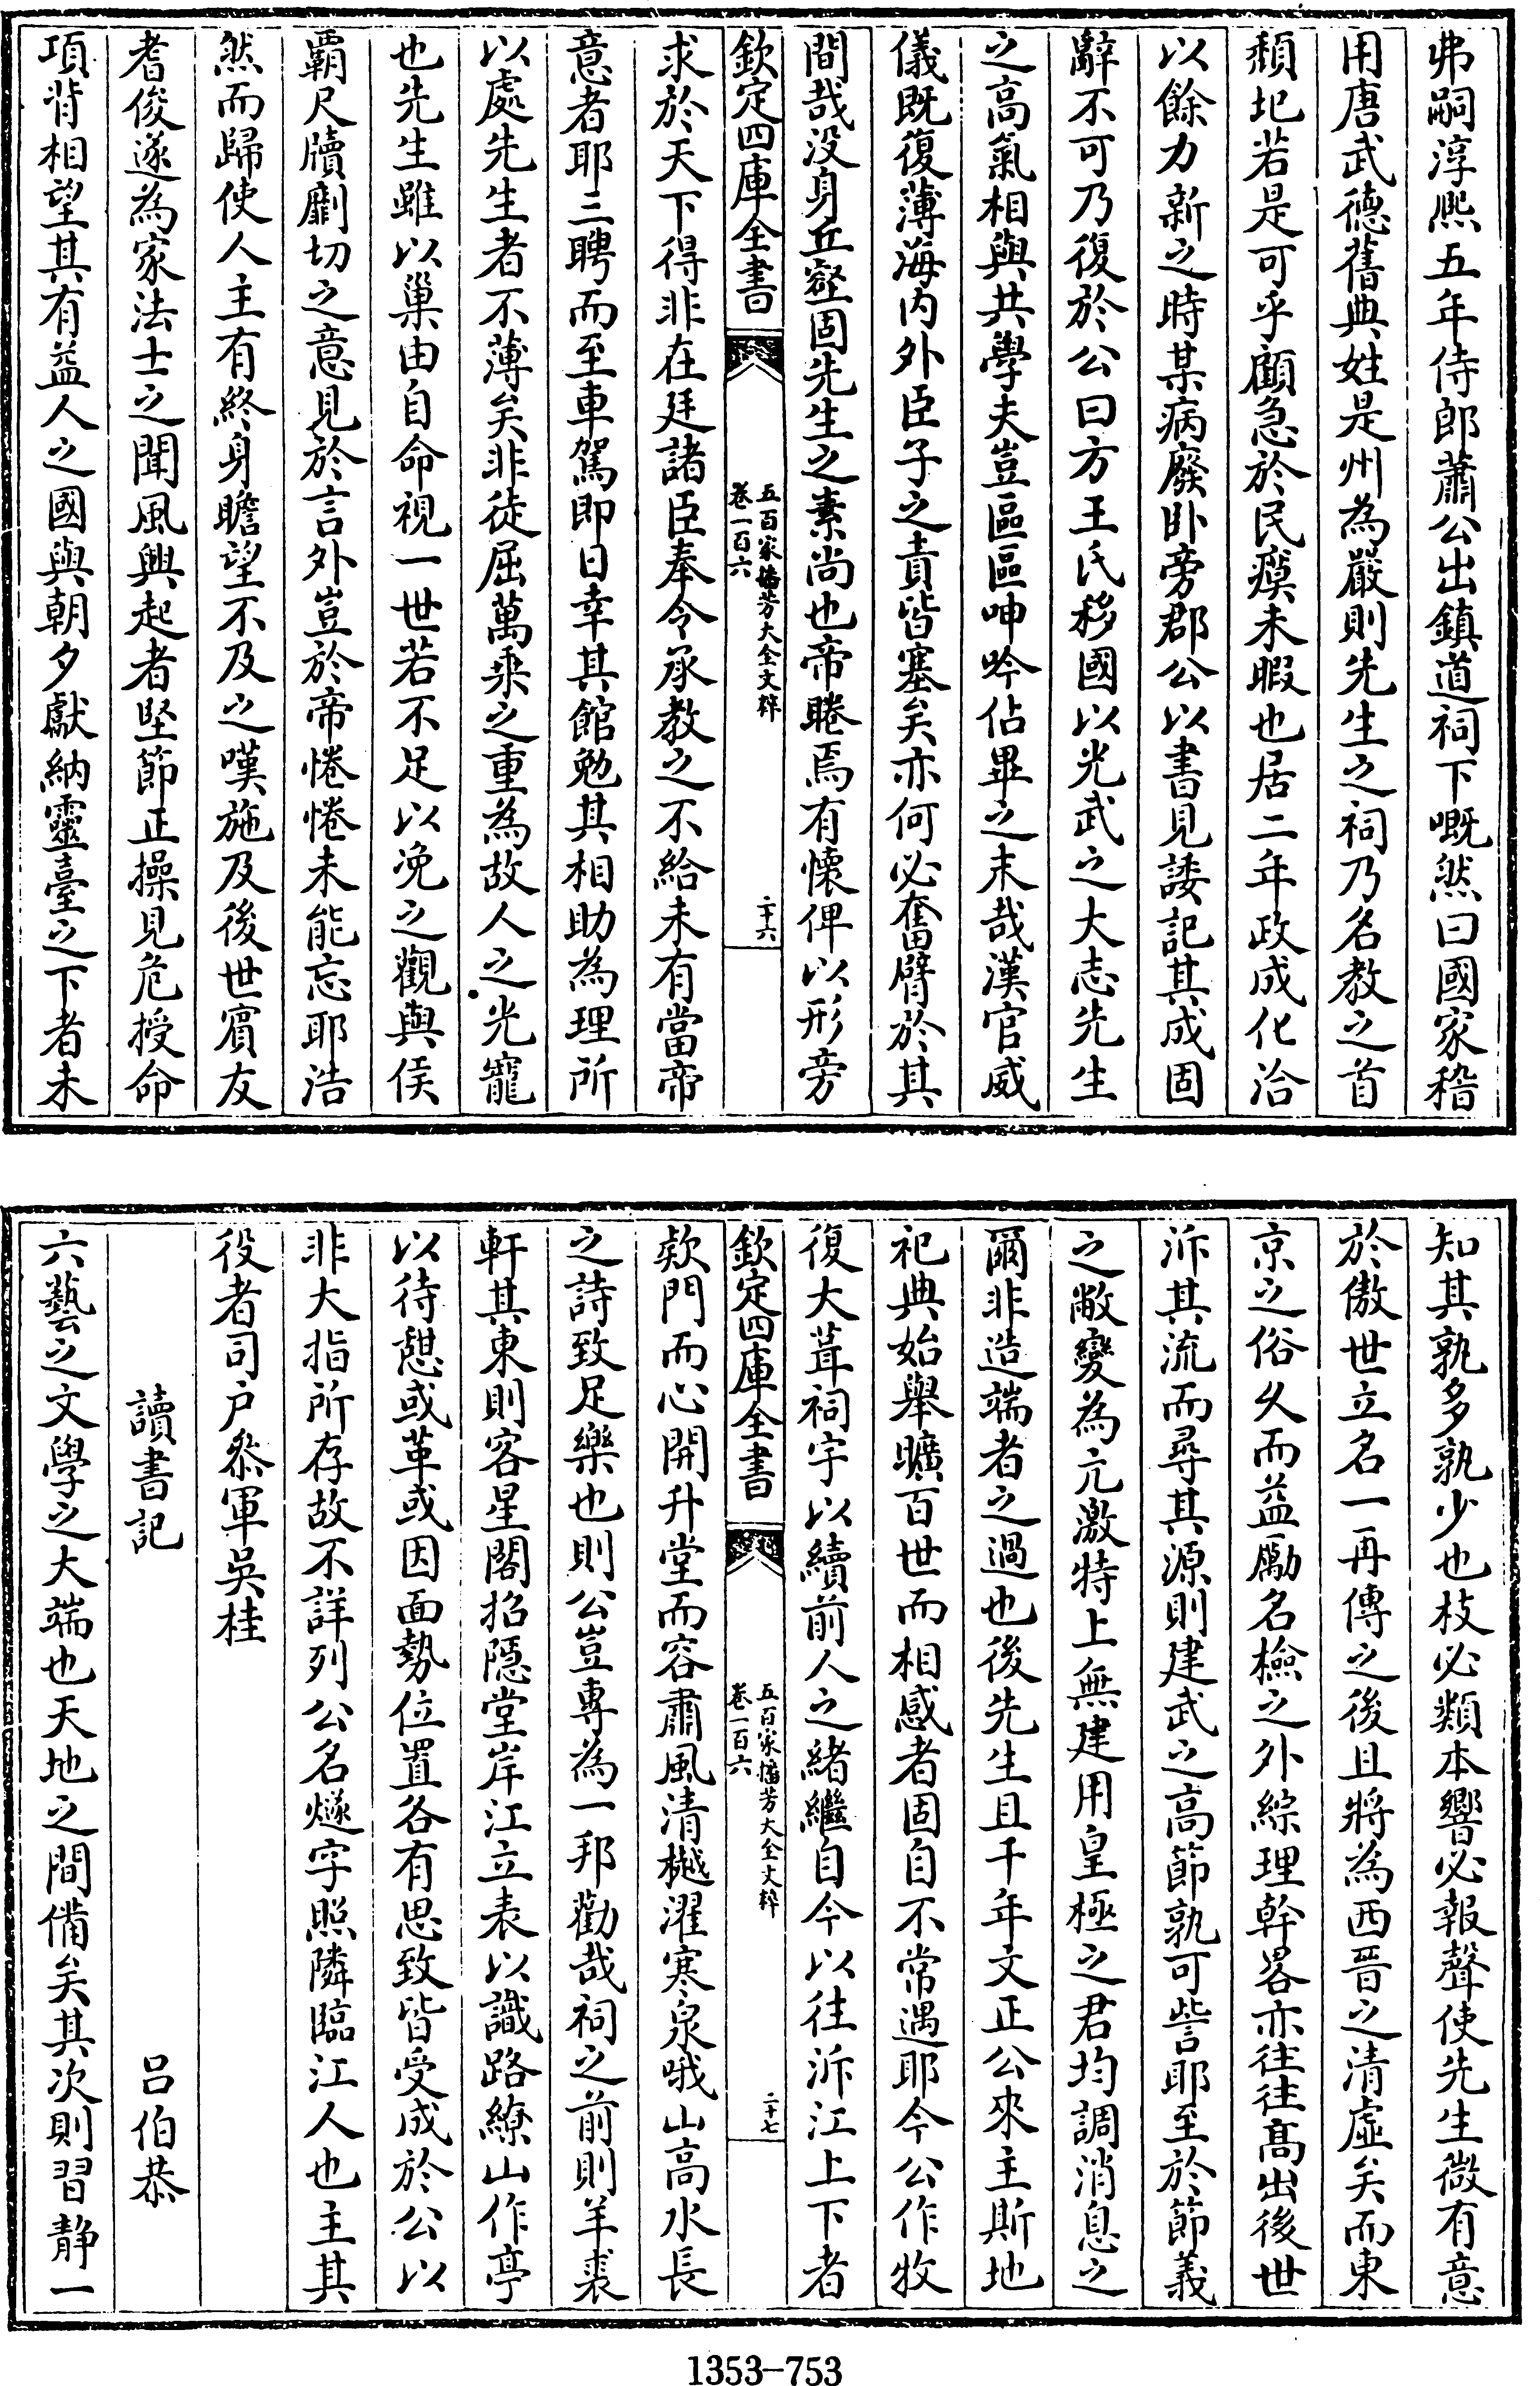 弗嗣淳熙五年侍郎蕭公出鎮道祠下嘅然曰國家稽
用唐武德舊典姓是州為嚴則先生之祠乃名教之首
頹圮若是可乎顧急於民瘼未暇也居二年政成化洽
以餘力新之時某病廢卧旁郡公以書見諉記其成固
辭不可乃復於公曰方王氏移國以光武之大志先生
之高氣相與共學夫豈區區呻吟佔畢之末哉漢官威
儀既復薄海内外臣子之責皆塞矣亦何必奮臂於其
間哉没身丘壑固先生之素尚也帝睠焉有懷俾以形旁
欽定四庫全書
五百家播芳大全文粹
卷一百六
二十六
求於天下得非在廷諸臣奉令承教之不給未有當帝
意者耶三聘而至車駕即日幸其館勉其相助為理所
以處先生者不薄矣非徒屈萬乘之重為故人之光寵
也先生雖以巢由自命視一世若不足以浼之觀與侯
霸尺牘劘切之意見於言外豈於帝惓惓未能忘耶浩
然而歸使人主有終身瞻望不及之嘆施及後世賓友
耆俊遂為家法士之聞風興起者堅節正操見危授命
項背相望其有益人之國與朝夕獻納靈臺之下者未
知其孰多孰少也枝必類本響必報聲使先生微有意
於傲世立名一再傳之後且將為西晉之清虚矣而東
京之俗久而益厲名檢之外綜理幹畧亦往往髙出後世
泝其流而尋其源則建武之高節孰可訾耶至於節義
之敝變為亢激特上無建用皇極之君均調消息之
爾非造端者之過也後先生且千年文正公來主斯地
祀典始舉曠百世而相感者固自不常遇耶今公作牧
復大葺祠宇以續前人之緒繼自今以往泝江上下者
欽定四庫全書
五百家播芳大全文粹
卷一百六
二十七
欵門而心開升堂而容肅風清樾濯寒泉哦山高水長
之詩致足樂也則公豈專為一邦勸哉祠之前則羊裘
軒其東則客星閣招隠堂岸江立表以識路繚山作亭
以待憩或革或因面勢位置各有思致皆受成於公以
非大指所存故不詳列公名燧字照隣臨江人也主其
役者司户叅軍吳桂
讀書記
吕伯恭
六藝之文學之大端也天地之間備矣其次則習静一
1353-753